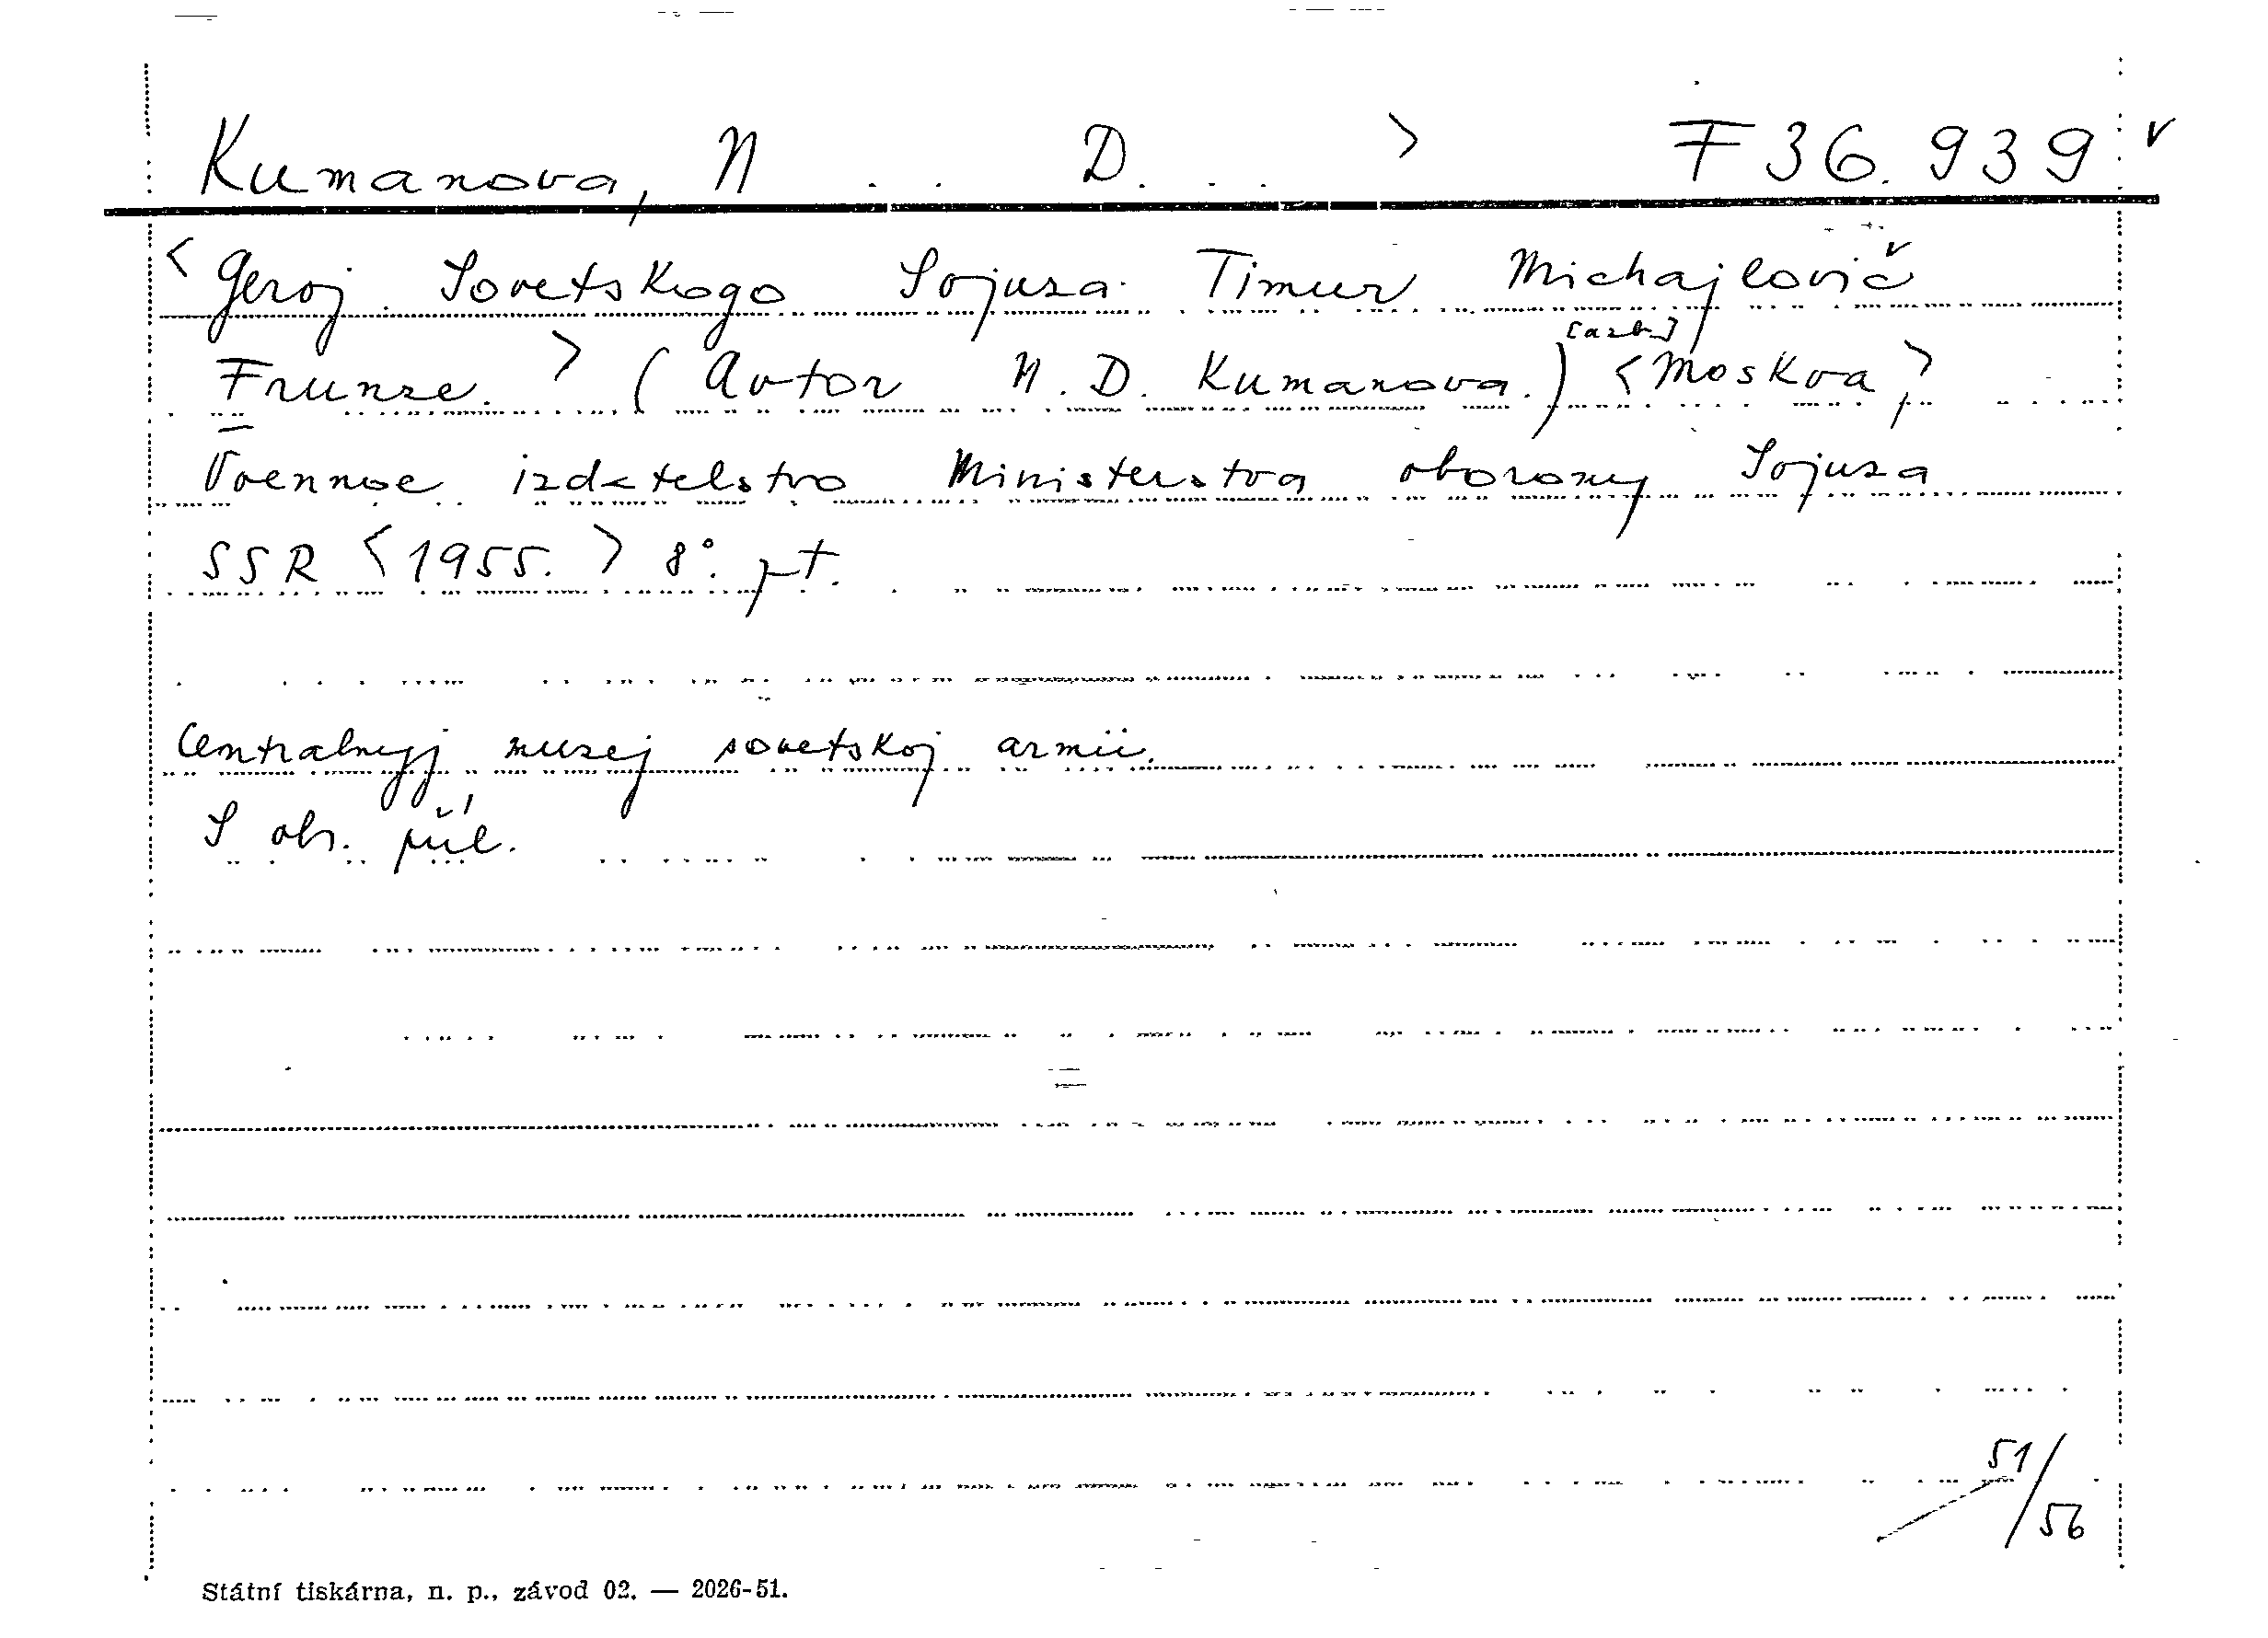 Kumanova, N . . D. . . > F 36.939 v
<Geroj Sovetskogo Sojuza Timur Michajlovič
[azb.]
Frunze.> (Avtor N. D. Kumanova.) <Moskva,>
Voennoe izdatelstvo Ministerstva oborony Sojuza
SSR <1955.> 8°. pt.
Centralnyj muzej sovetskoj armii.
S obr. příl.
51/56
Státní tiskárna, n. p., závod 02. — 2026-51.